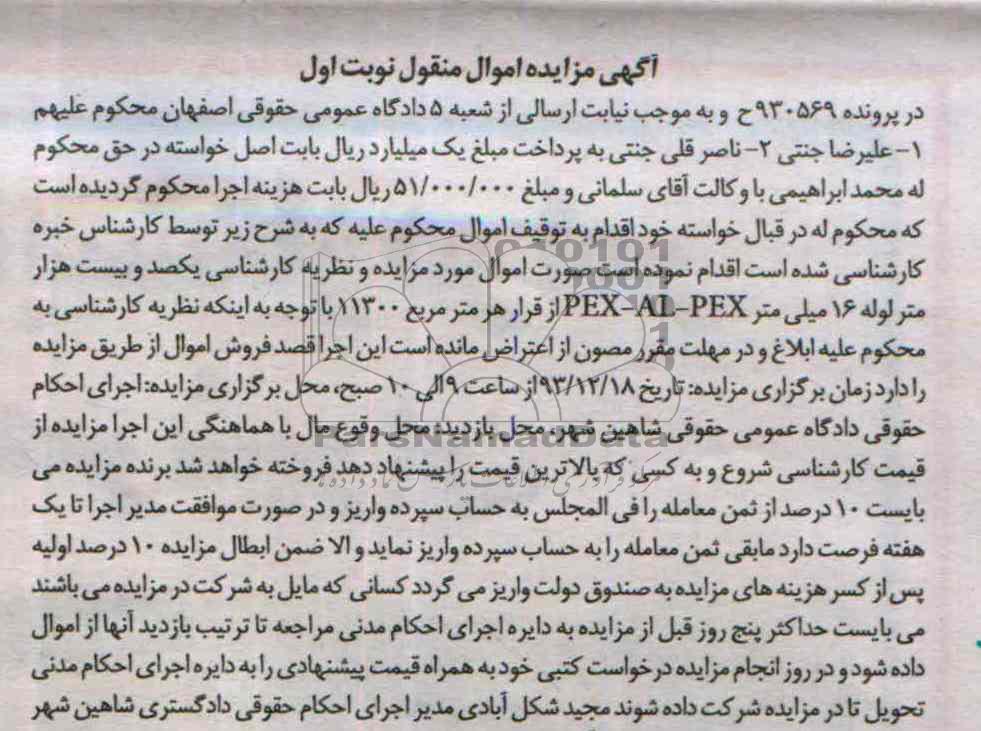 آگهی مزایده اموال منقول نوبت اول
در پرونده ۹۳۰۵۶۹ح و به موجب نیابت ارسالی از شعبه ۵ دادگاه عمومی حقوقی اصفهان محکوم علیهم
۱- علیرضا جنتی ۲- ناصر قلی جنتی به پرداخت مبلغ یک میلیارد ریال بابت اصل خواسته در حق محکوم
له محمد ابراهیمی با وکالت آقای سلمانی و مبلغ ۵۱/۰۰۰/۰۰۰ ریال بابت هزینه اجرا محکوم گردیده است
که محکوم له در قبال خواسته خود اقدام به توقیف اموال محکوم علیه که به شرح زیر توسط کارشناس خبره
کارشناسی شده است اقدام نموده است صورت اموال مورد مزایده و نظریه کارشناسی یکصد و بیست هزار
متر لوله ۱۶ میلی متر PEX-AL-PEX از قرار هر متر مربع ۱۱۳۰۰ با توجه به اینکه نظریه کارشناسی به
محکوم علیه ابلاغ و در مهلت مقرر مصون از اعتراض مانده است این اجرا قصد فروش اموال از طریق مزایده
را دارد زمان برگزاری مزایده: تاریخ ۹۳/۱۲/۱۸ از ساعت ۹ الی ۱۰ صبح، محل برگزاری مزایده: اجرای احکام
حقوقی دادگاه عمومی حقوقی شاهین شهر، محل بازدید: محل وقوع مال با هماهنگی این اجرا مزایده از
قیمت کارشناسی شروع و به کسی که بالاترین قیمت را پیشنهاد دهد فروخته خواهد شد برنده مزایده می
بایست ۱۰ درصد از ثمن معامله را فی المجلس به حساب سپرده واریز و در صورت موافقت مدیر اجرا تا یک
هفته فرصت دارد مابقی ثمن معامله را به حساب سپرده واریز نماید و الا ضمن ابطال مزایده ۱۰ درصد اولیه
پس از کسر هزینه های مزایده به صندوق دولت واریز می گردد کسانی که مایل به شرکت در مزایده می باشند
می بایست حداکثر پنج روز قبل از مزایده به دایره اجرای احکام مدنی مراجعه تا ترتیب بازدید آنها از اموال
داده شود و در روز انجام مزایده درخواست کتبی خود به همراه قیمت پیشنهادی را به دایره اجرای احکام مدنی
تحویل تا در مزایده شرکت داده شوند مجید شکل آبادی مدیر اجرای احکام حقوقی دادگستری شاهین شهر
ParsNamadData